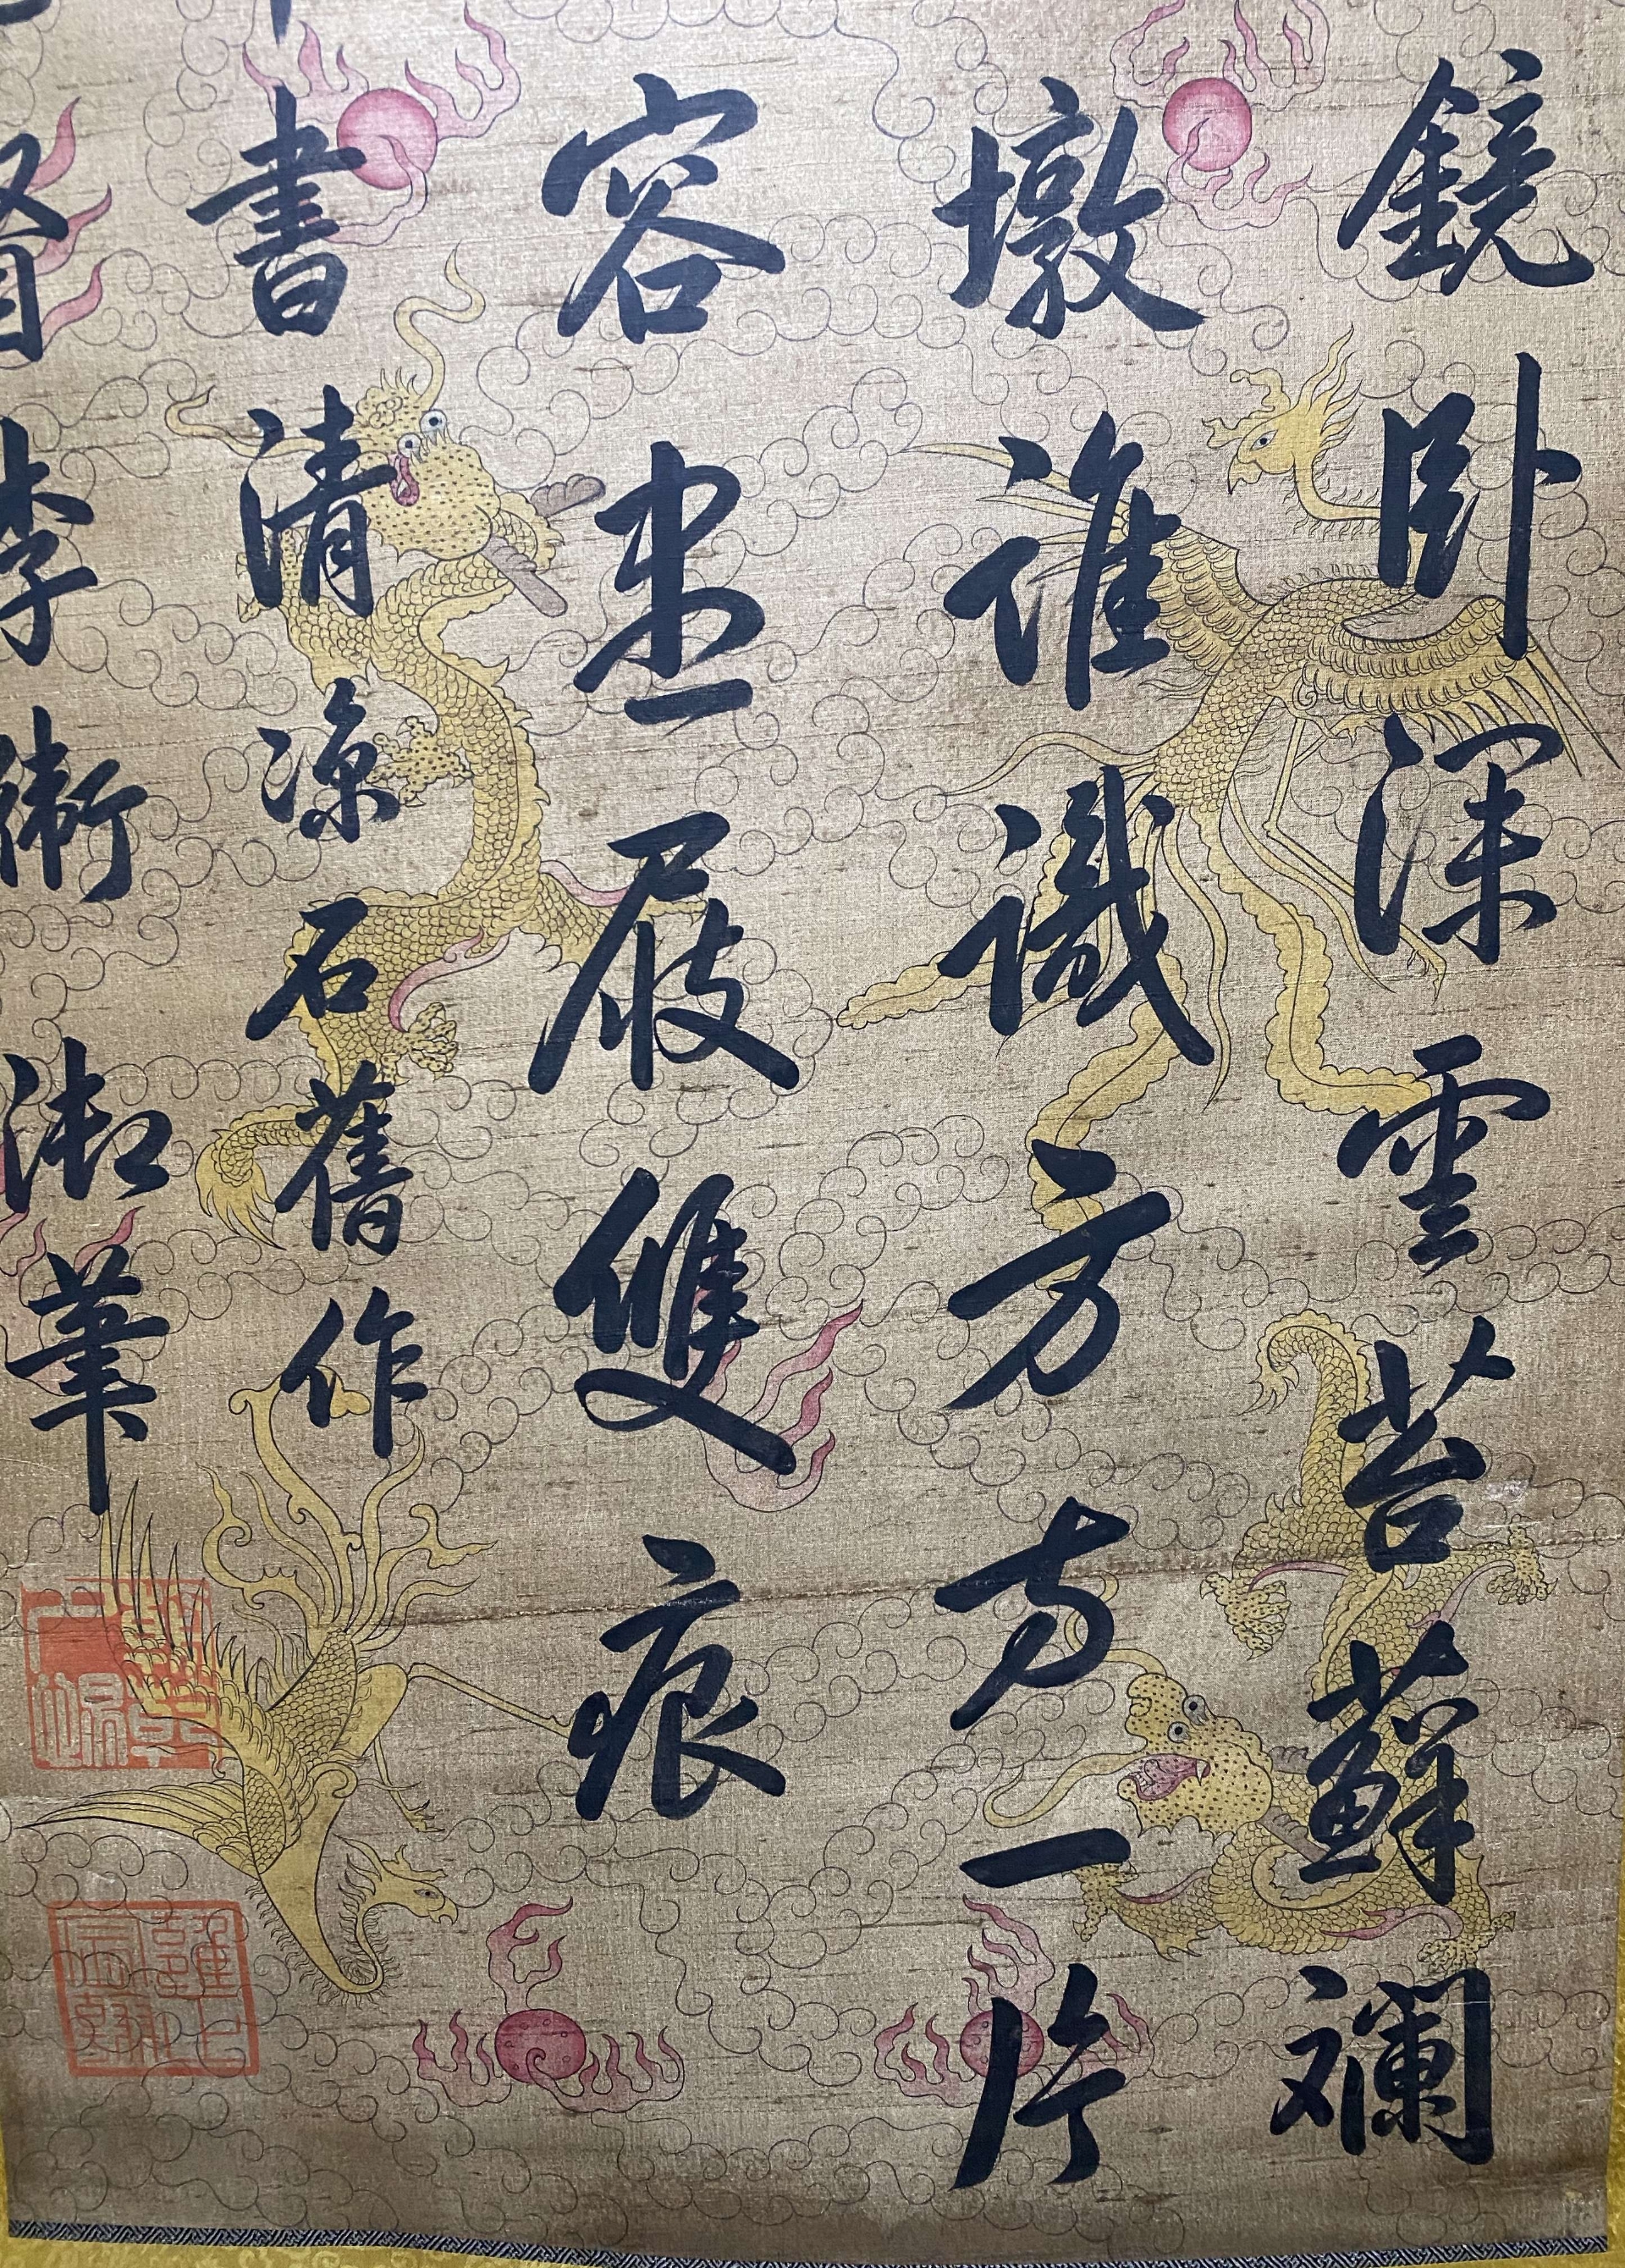 鏡卧深雲苔蘚斕
墩誰識方方一片
容盡屐雙痕
書清涼石舊作
賢李衛淑筆